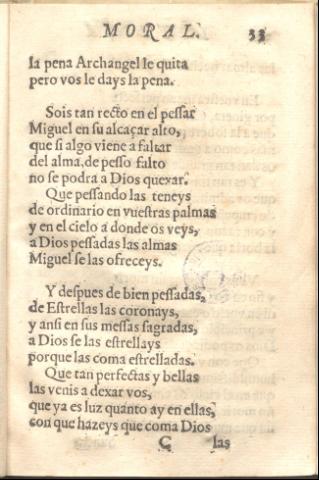 MORAL. 33
la pena Archangel le quita
pero vos le days la pena.
Sois tan recto en el pessar
Miguel en su alcaçar alto,
que si algo viene a faltar
del alma, de pesso falto
no se podra a Dios quexar.
Que pessando las teneys
de ordinario en vuestras palmas
y en el cielo a donde os veys,
a Dios pessadas las almas
Miguel se las ofreceys.
Y despues de bien pessadas,
de Estrellas las coronays,
y ansi en sus messas sagradas,
a Dios se las estrellays
porque las coma estrelladas.
Que tan perfectas y bellas
las venis a dexar vos,
que ya es luz quanto ay en ellas,
con que hazeys que coma Dios
C las